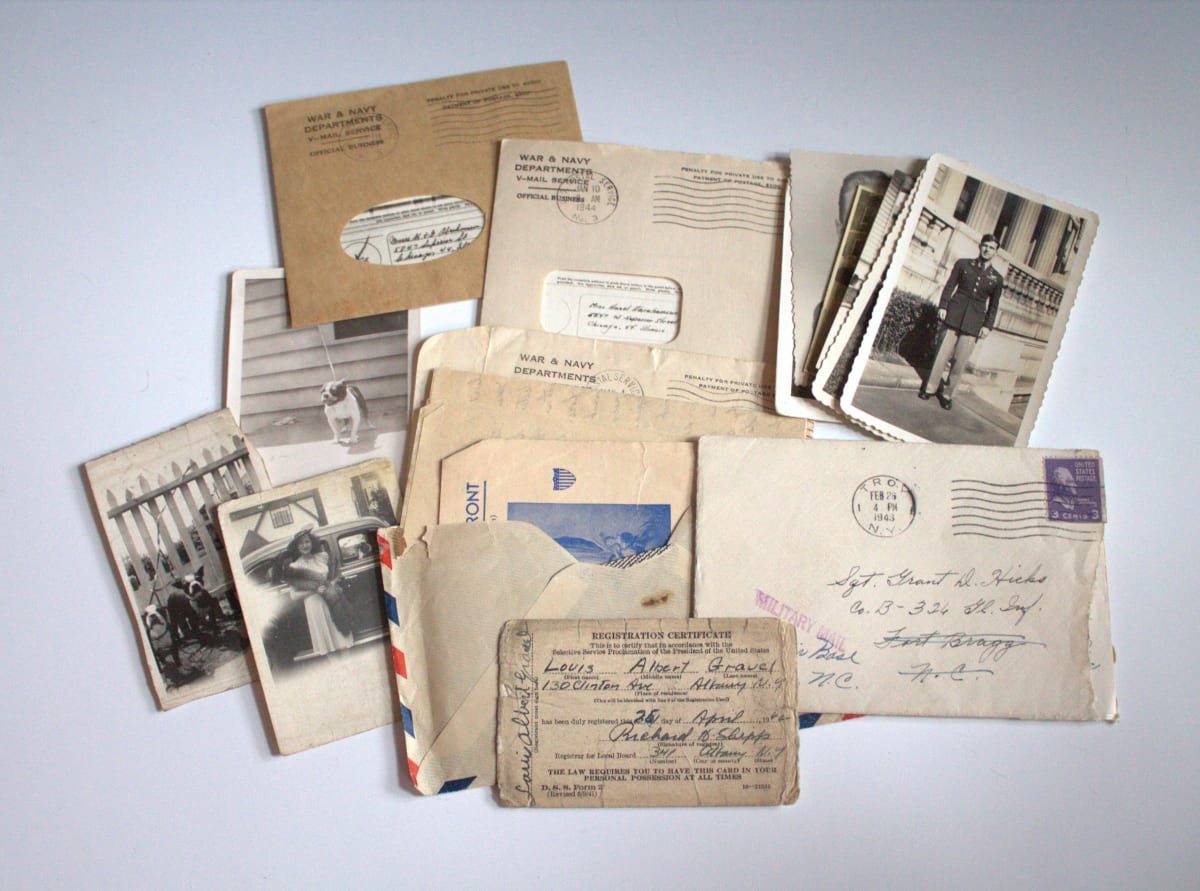 WAR & NAVY
DEPARTMENTS
V-MAIL SERVICE
OFFICIAL BUSINESS
PENALTY FOR PRIVATE USE TO AVOID
PAYMENT OF POSTAGE, $300
Superior St
Chicago 44, Ill
WAR & NAVY
DEPARTMENTS
V-MAIL SERVICE
OFFICIAL BUSINESS
SERVICE
JAN 10
AM
1944
PENALTY FOR PRIVATE USE TO AV
PAYMENT OF POSTAGE, $300
Miss Hazel Abrahamson
Superior Street
Chicago, 44 Illinois
WAR & NAVY
DEPARTMENTS
SERVICE
PENALTY FOR PRIVATE USE
PAYMENT OF POSTAGE
RONT
TROY
FEB 26
4 PM
1943
N.Y.
UNITED
STATES
POSTAGE
3 CENTS 3
MILITARY MAIL
Sgt. Grant D. Hicks
Co. B-326 Gl. Inf.
Fort Bragg
N.C.
Base
N.C.
REGISTRATION CERTIFICATE
This is to certify that in accordance with the
Selective Service Proclamation of the President of the United States
Louis Albert Gravel
(First name) (Middle name) (Last name)
130 Clinton Ave. Albany N.Y
(Place of residence)
(This will be identical with line 2 of the Registration Card)
has been duly registered this 25 day of April, 194
Richard D Shipps
(Signature of registrar)
Registrar for Local Board 341 Albany N.Y
(Number) (City or county) (State)
THE LAW REQUIRES YOU TO HAVE THIS CARD IN YOUR
PERSONAL POSSESSION AT ALL TIMES
D. S. S. Form 2
(Revised 6/9/41)
Louis Albert Gravel